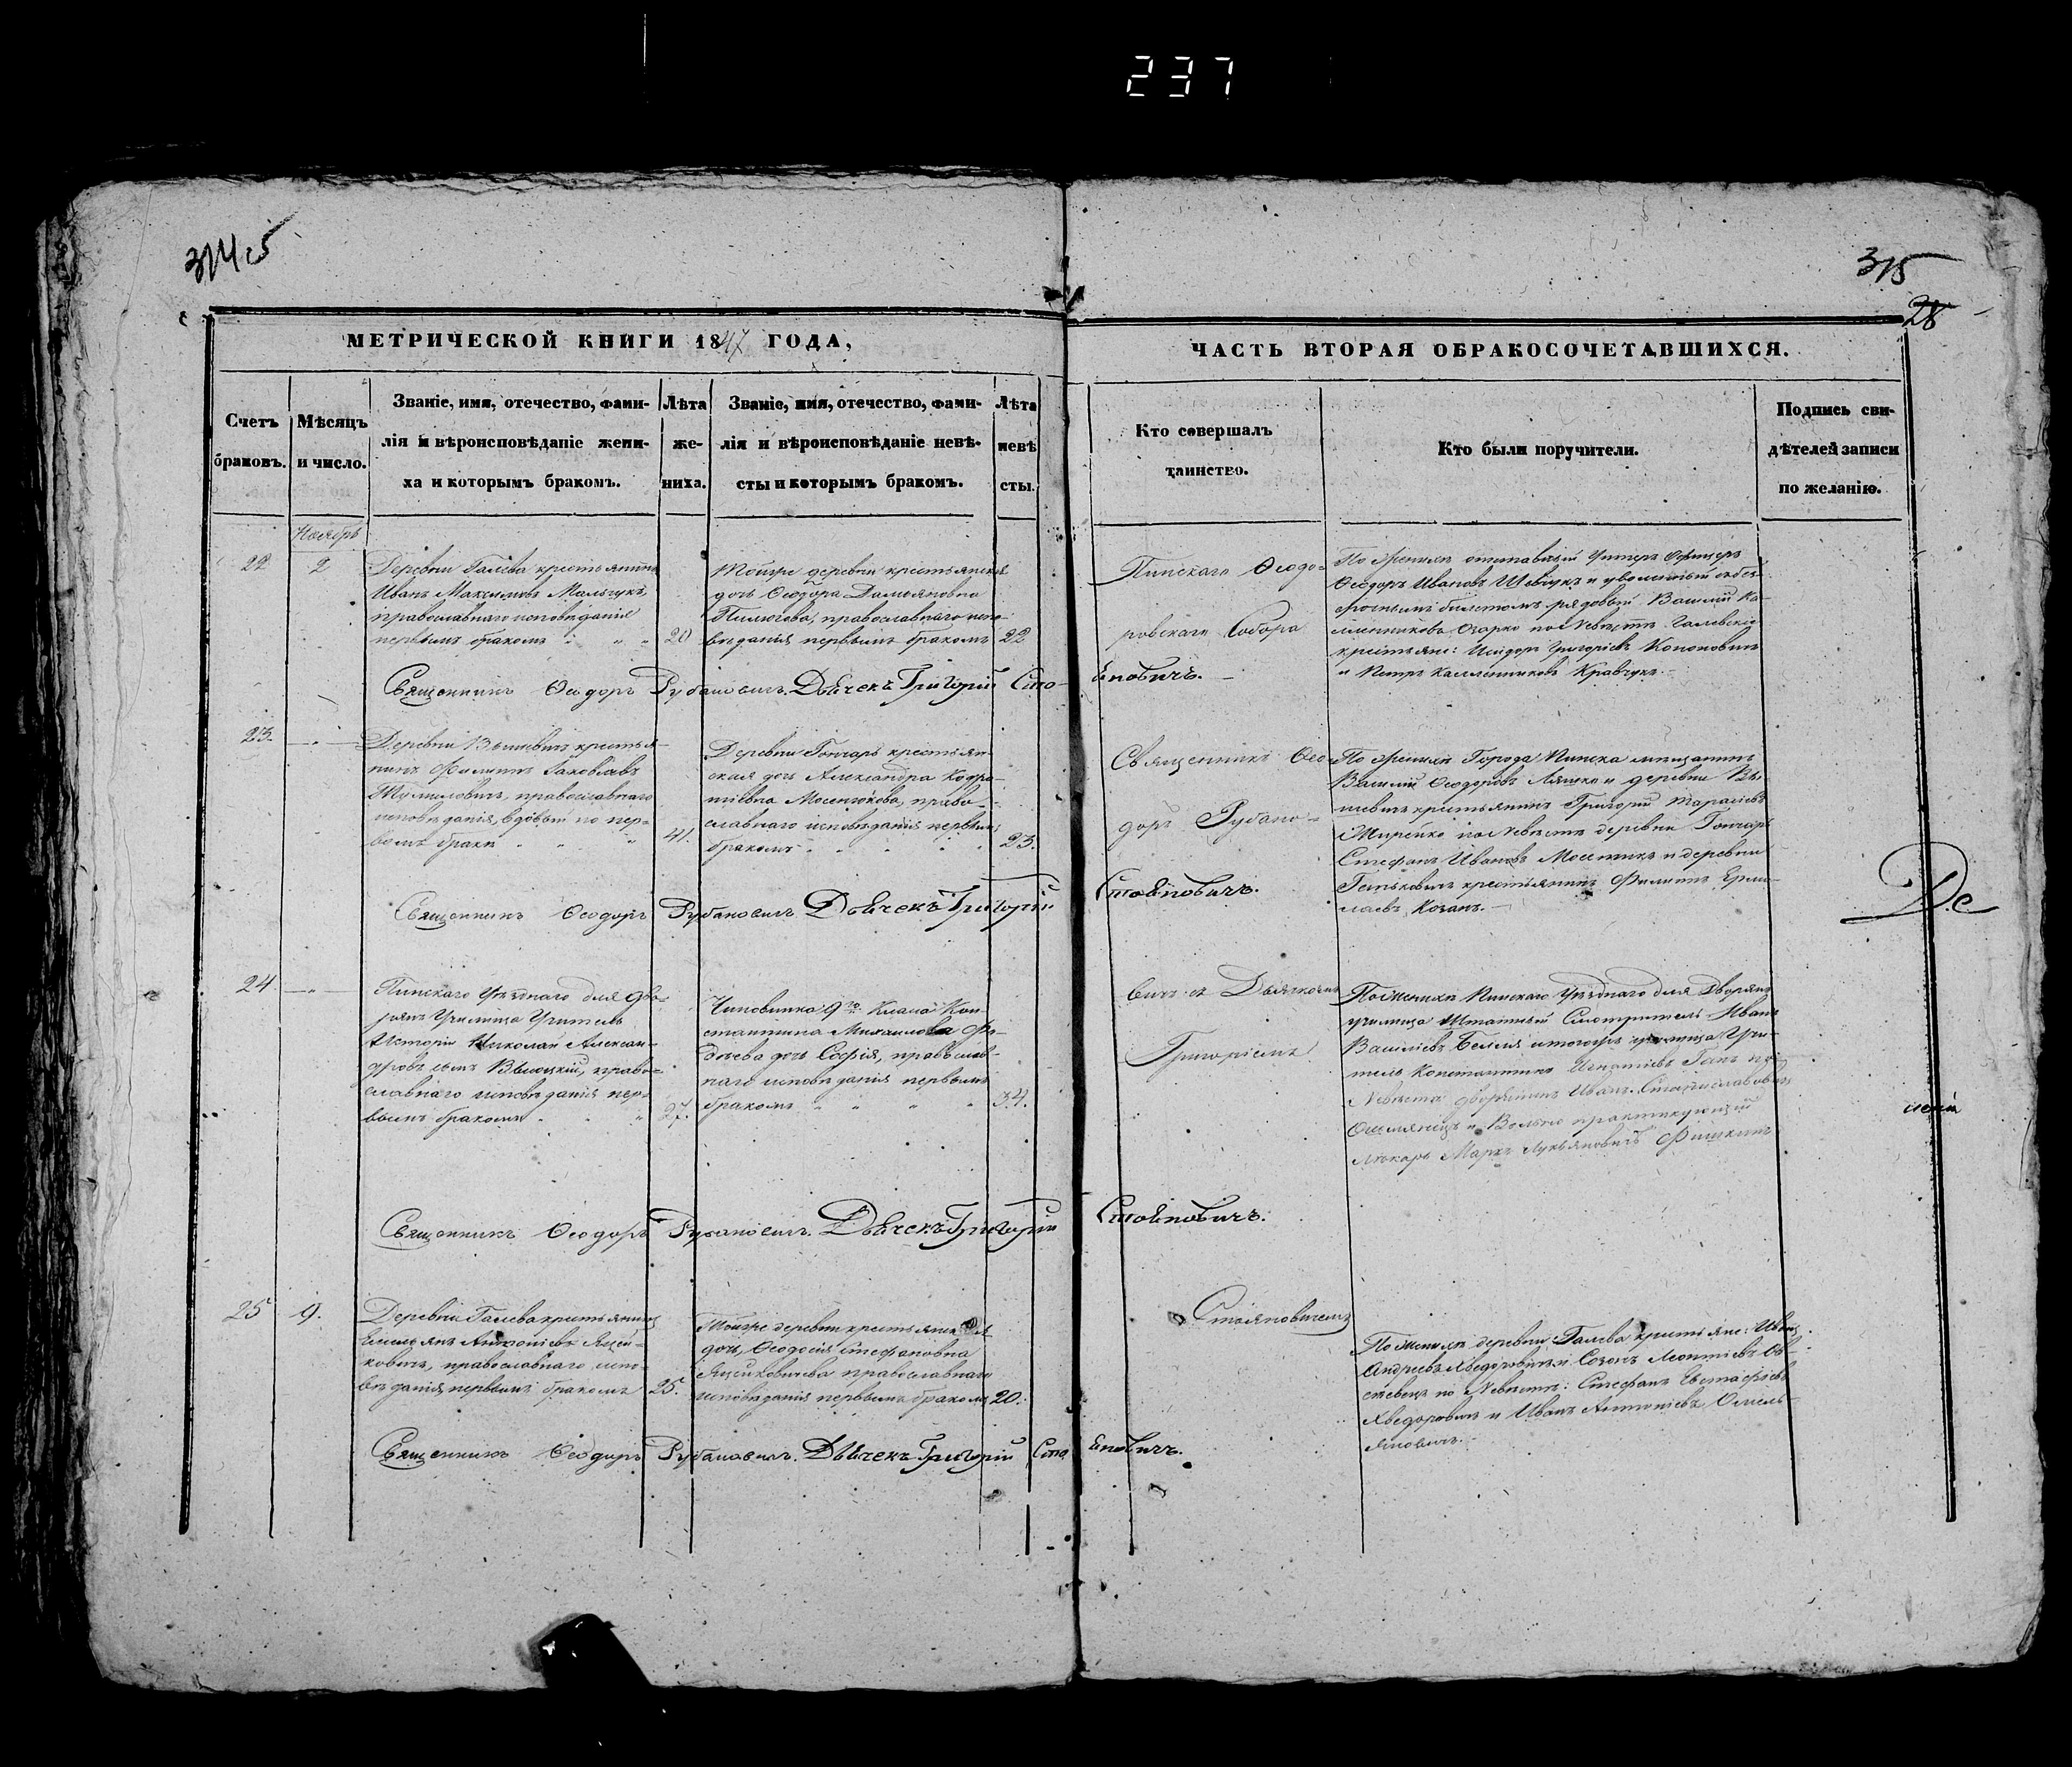 237
314 c5
315
28
МЕТРИЧЕСКОЙ КНИГИ 1847 ГОДА,
ЧАСТЬ ВТОРАЯ ОБРАКОСОЧЕТАВШИХСЯ.
Счетъ браковъ.
Мѣсяцъ и число.
Званіе, имя, отечество, фами-
лія и вѣроисповѣданіе жени-
ха и которымъ бракомъ.
Лѣта
же-
ниха.
Званіе, имя, отечество, фами-
лія и вѣроисповѣданіе невѣ-
сты и которымъ бракомъ.
Лѣта
невѣ
сты.
Кто совершалъ
таинство.
Кто были поручители.
Подпись сви-
дѣтелей записи
по желанію.
Ноябрь
22
2
Деревни Галева крестьянинъ
Иванъ Максимовъ Мальчукъ,
православнаго исповѣданія
первымъ бракомъ " "
20
Тойже деревни крестьянская
дочь Ѳеодора Дамьяновна
Пилюгова, православнаго испо-
вѣданія первымъ бракомъ
22
Пинскаго Ѳеодо-
ровскаго Собора
По женихѣ отставный Унтеръ Офицеръ
Ѳеодоръ Ивановъ Шевчукъ и уволенный въ без-
срочнымъ билетомъ рядовый Василій Ка-
линниковъ Озарко по Невѣстѣ Галевскіе
крестьяне: Исидоръ Григорьевъ Кононовичъ
и Петръ Калинниковъ Кравчукъ.
Священникъ Ѳеодоръ Рубановичъ. Дьячекъ Григорій Сто-
яновичъ.
23.
"
Деревни Вѣшевичъ крестья-
нинъ Филиппъ Іаковлевъ
православнаго
исповѣданія, вдовый по пер-
вомъ бракѣ " " "
41.
Деревни Гончаръ крестьян-
ская дочь Александра Кодра-
тіевна Мосенчюкова, право-
славнаго исповѣданія первымъ
бракомъ " " " "
23.
Священникъ Ѳео-
доръ Рубано-
По женихѣ Города Пинска мѣщанинъ
Василій Ѳеодоровъ Ляшко и деревни Вѣ-
шевичъ крестьянинъ Григорій Тарасіевъ
по Невѣстѣ деревни Гончаръ
Стефанъ Ивановъ и деревни
крестьянинъ Филиппъ Ермо-
лаевъ Козакъ.
Священникъ Ѳеодоръ Рубановичъ Дьячекъ Григорій
Стояновичъ.
Де
24.
"
Пинскаго Уѣзднаго для дво-
рянъ Училища Учитель
Исторіи Николай Алексан-
дровъ сынъ Высоцкій, право-
славнаго исповѣданія пер-
вымъ бракомъ " " "
27.
Чиновника 9го Класса Кон-
стантина Михаилова
дочь Софія, православ-
наго исповѣданія первымъ
бракомъ " " " "
34.
вичъ съ Дьячкомъ
Григоріемъ
По женихѣ Пинскаго Уѣзднаго для Дворянъ
училища Штатный Смотритель Иванъ
Васильевъ и тогоже училища Учи-
тель Константинъ Игнатіевъ по
Невѣстѣ дворянинъ Иванъ Станиславовъ
и Вольно практикующій
лѣкарь Маркъ Лукьяновичъ
Священникъ Ѳеодоръ Рубановичъ. Дьячекъ Григорій
Стояновичъ.
25
9.
Деревни Галева крестьянинъ
Емельянъ Антоніевъ Яцей-
ковичъ, православнаго испо-
вѣданія первымъ бракомъ
25.
Тойже деревни крестьянская
дочь, Ѳеодосія Стефановна
Яцейковичева православнаго
исповѣданія первымъ бракомъ
20.
Стояновичемъ
По женихѣ деревни Галева крестьяне: Иванъ
Андреевъ Хведоровичъ и Созонъ Леонтіевъ
по Невѣстѣ: Стефанъ Евстафіевъ
Хведоровичъ и Иванъ Антоніевъ Омель-
яновичъ.
Священникъ Ѳеодоръ Рубановичъ. Дьячекъ Григорій Сто
яновичъ.